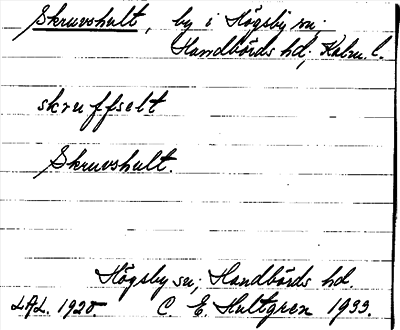 Skruvshult, by i Högsby sn;
Handbörds hd; Kalm. l.
skruffselt
Skruvshult.
Högsby sn; Handbörds hd.
LAL. 1928. C. E. Hultgren 1933.